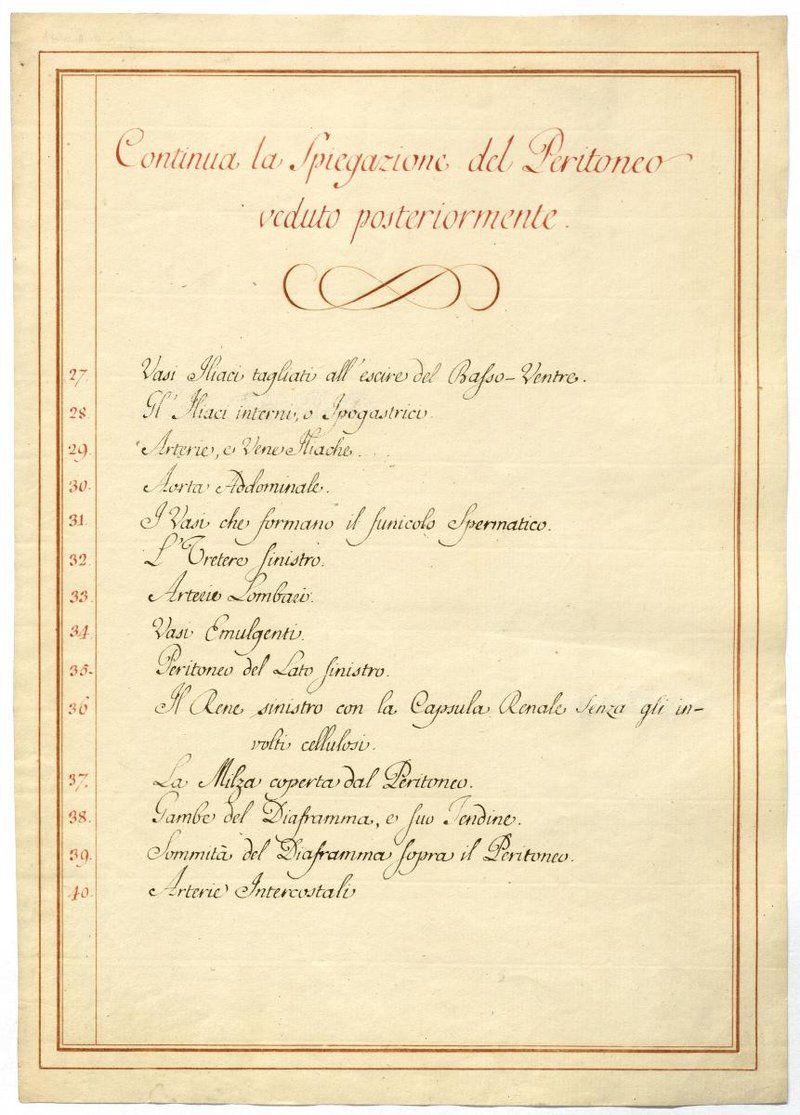 Continua la Spiegazione del Peritoneo
veduto posteriormente.
27. Vasi Iliaci tagliati all'escire del Basso-Ventre.
28. Gl'Iliaci interni, o Ipogastrici.
29. Arterie, e Vene Iliache.
30. Aorta Addominale.
31. I Vasi che formano il funicolo Spermatico.
32. L'Uretere sinistro.
33. Arterie Lombari.
34. Vasi Emulgenti.
35. Peritoneo del Lato sinistro.
36 Il Rene sinistro con la Capsula Renale senza gli in-
volti cellulosi.
37. La Milza coperta dal Peritoneo.
38. Gambe del Diaframma, e suo Tendine.
39. Sommità del Diaframma sopra il Peritoneo.
40. Arterie Intercostali